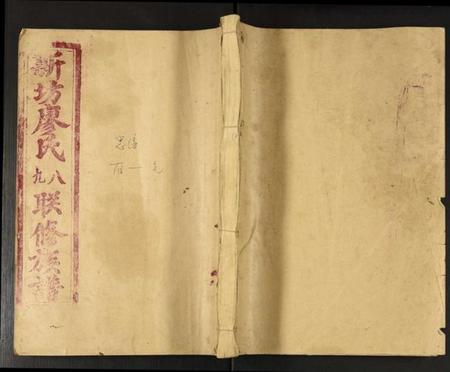 新坊廖氏
九八
联修族谱
百一元